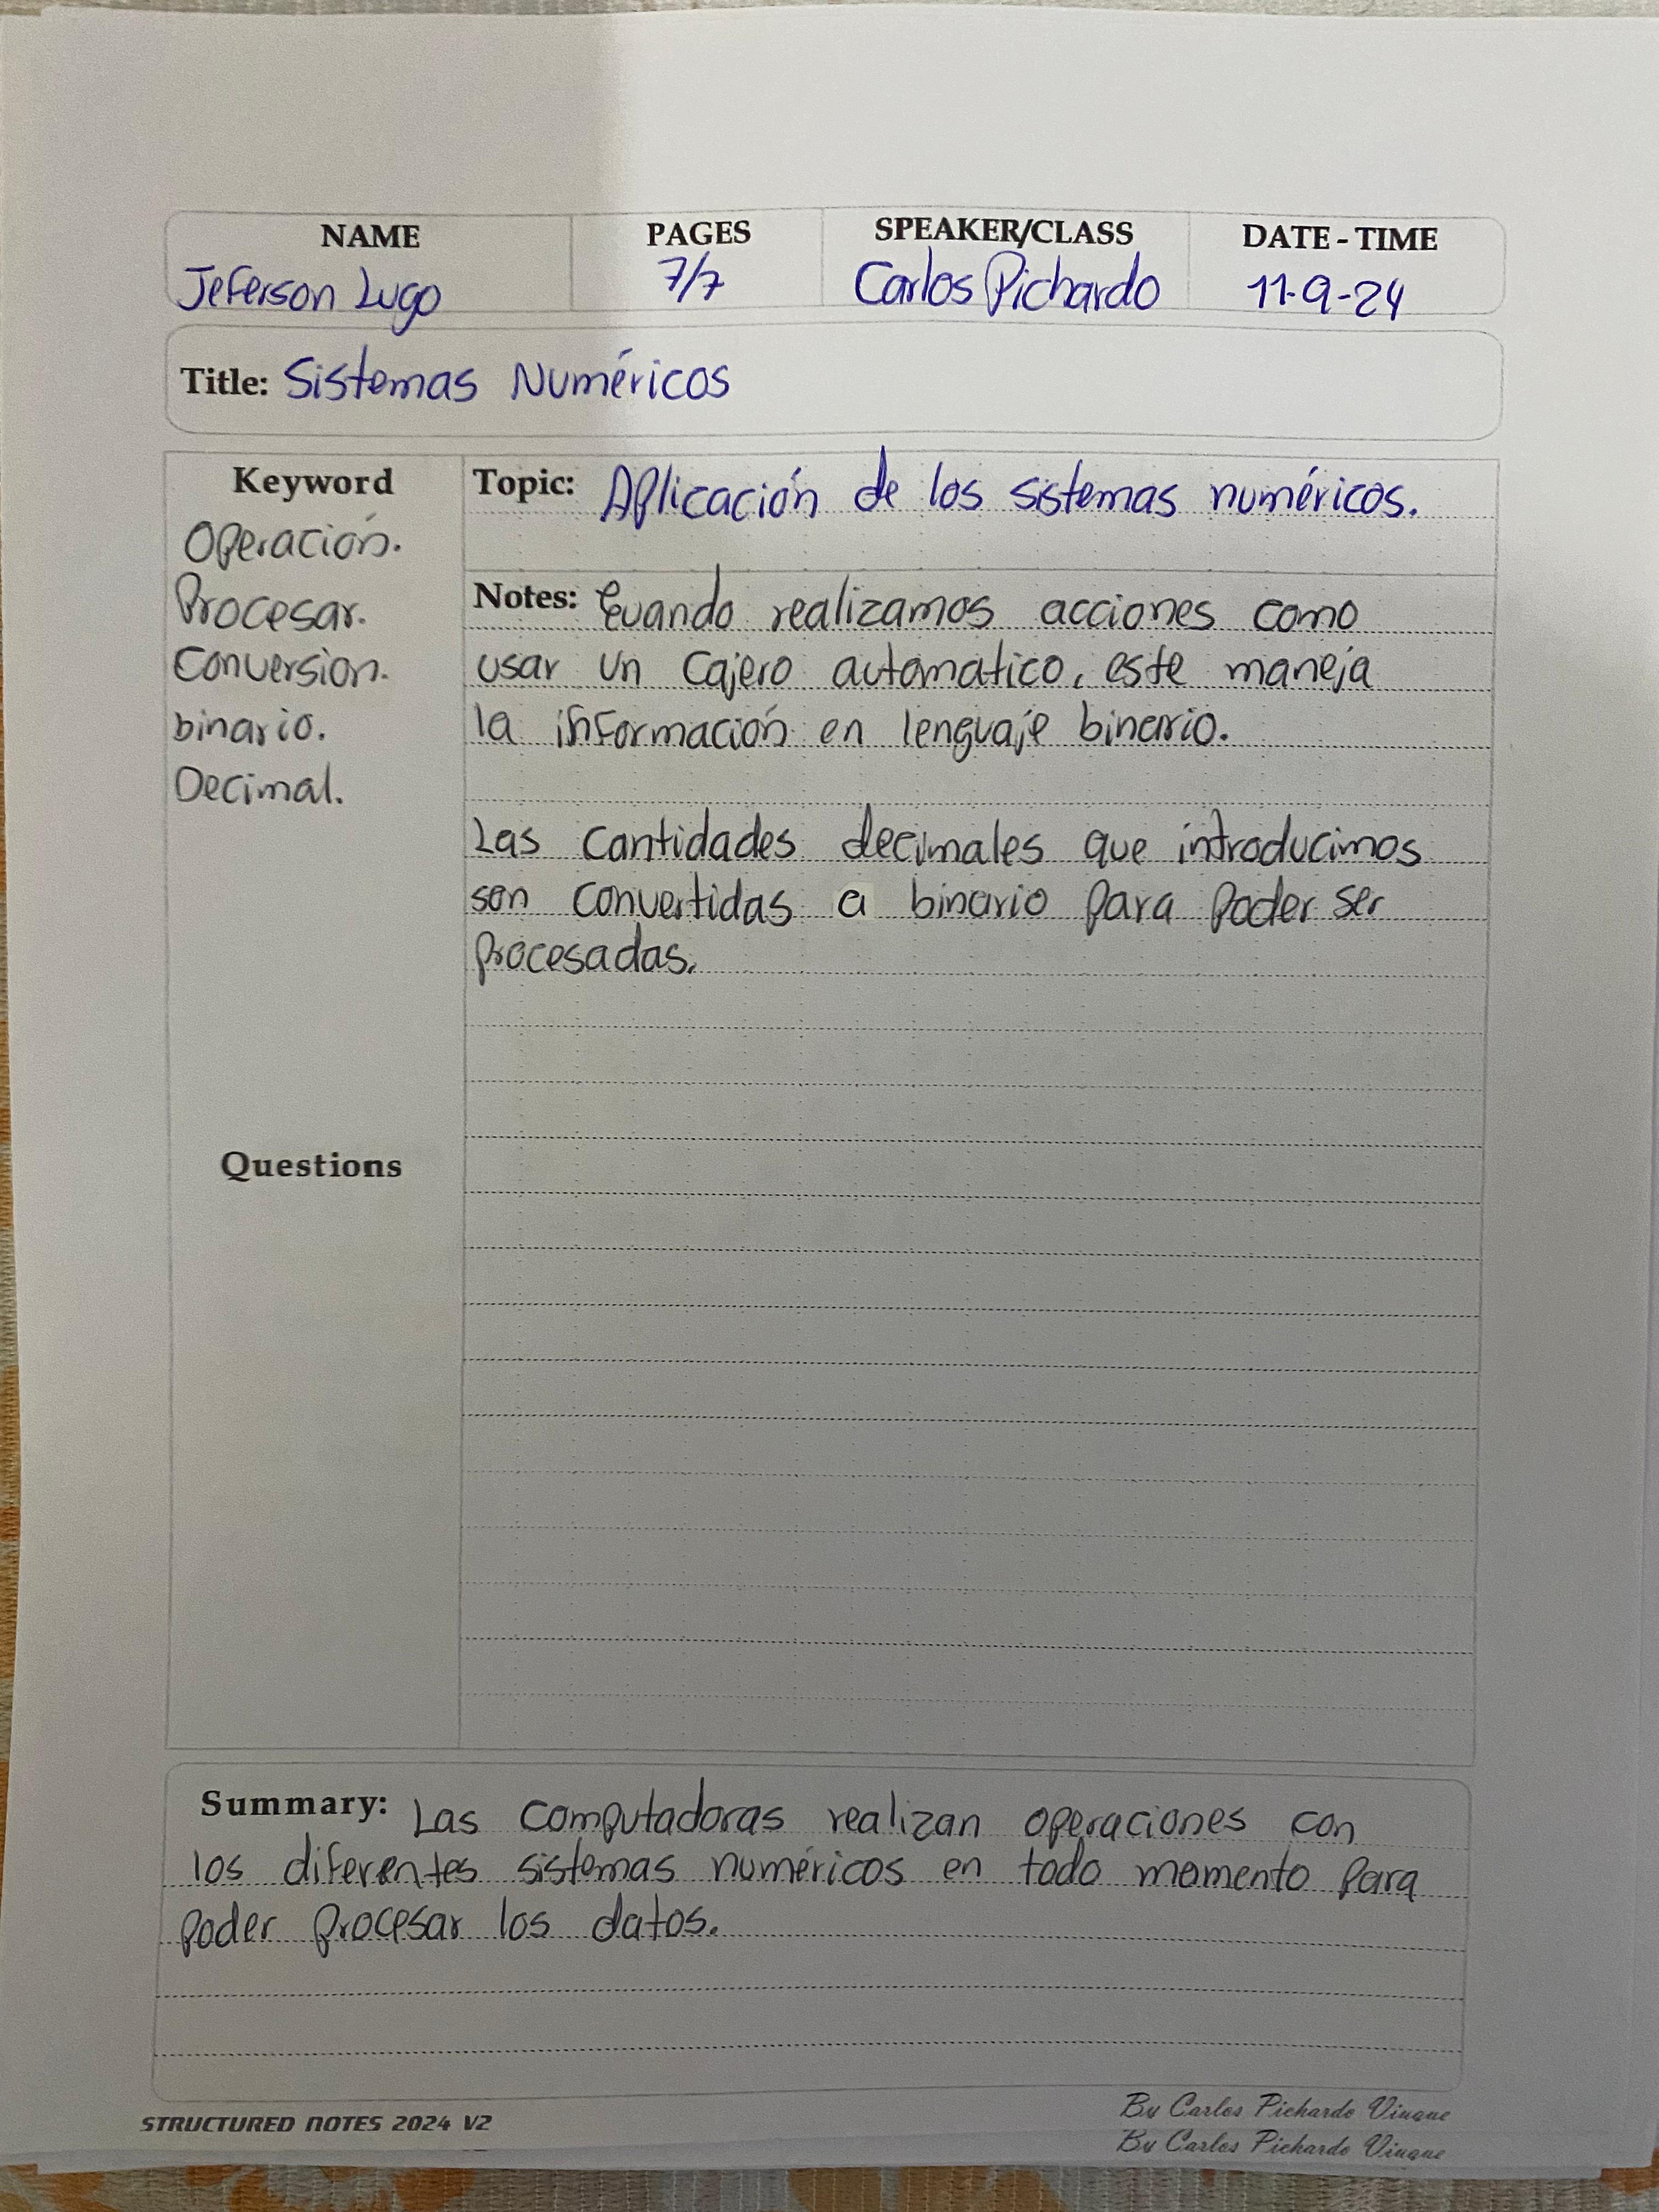 NAME PAGES SPEAKER/CLASS DATE - TIME
Jeferson Lugo 7/7 Carlos Pichardo 11-9-24
Title: Sistemas Numéricos
Keyword
Operación.
Procesar.
Conversion.
binario.
Decimal.
Topic: Aplicación de los sistemas numéricos.
Notes: Cuando realizamos acciones como
usar un cajero automatico, este maneja
la información en lenguaje binario.
Las cantidades decimales que introducimos
son convertidas a binario para poder ser
procesadas.
Questions
Summary: Las computadoras realizan operaciones con
los diferentes sistemas numéricos en todo momento para
poder procesar los datos.
STRUCTURED NOTES 2024 V2
By Carlos Pichardo Viuque
By Carlos Pichardo Viuque